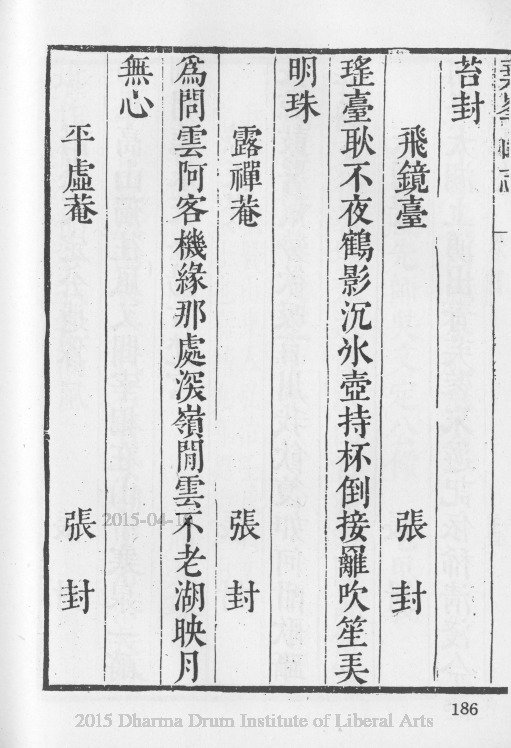 苔封
飛鏡臺 張封
瑤臺耿不夜鶴影沉氷壺持杯倒接䍦吹笙弄
明珠
露禪菴 張封
為問雲阿客機緣那處深嶺閒雲不老湖映月
無心
平虛菴 張封
186
2015-04-1
2015 Dharma Drum Institute of Liberal Arts